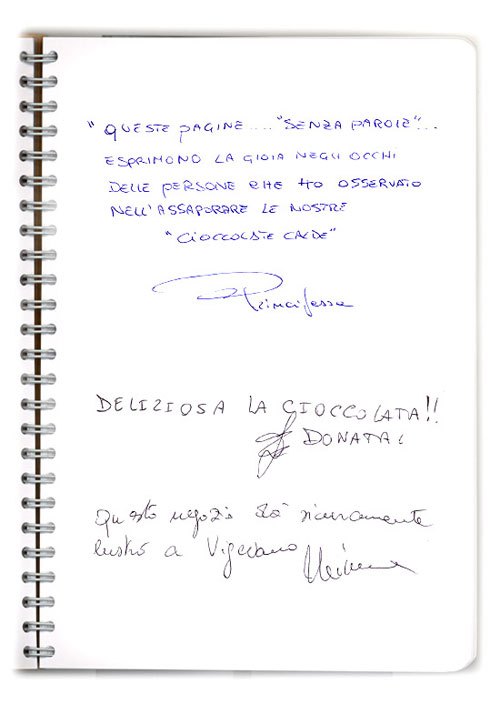 "QUESTE PAGINE.... "SENZA PAROLE"...
ESPRIMONO LA GIOIA NEGLI OCCHI
DELLE PERSONE CHE HO OSSERVATO
NELL'ASSAPORARE LE NOSTRE
"CIOCCOLATE CALDE"
Principessa
DELIZIOSA LA CIOCCOLATA!!
DONATA
Questo negozio dà sicuramente
lustro a Vigevano